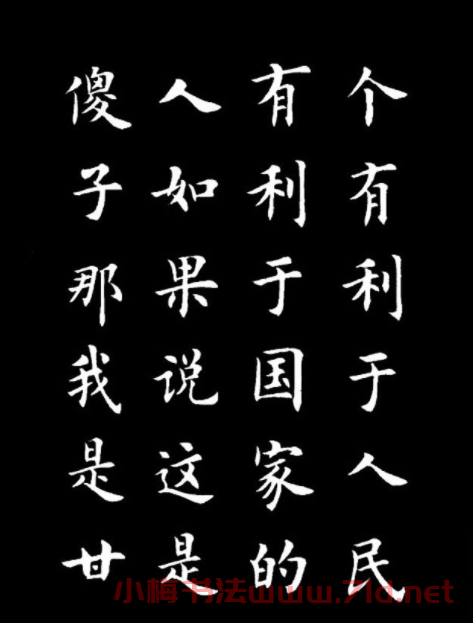 个有利于人民
有利于国家的
人如果说这是
傻子那我是甘
小梅书法www.7ld.net